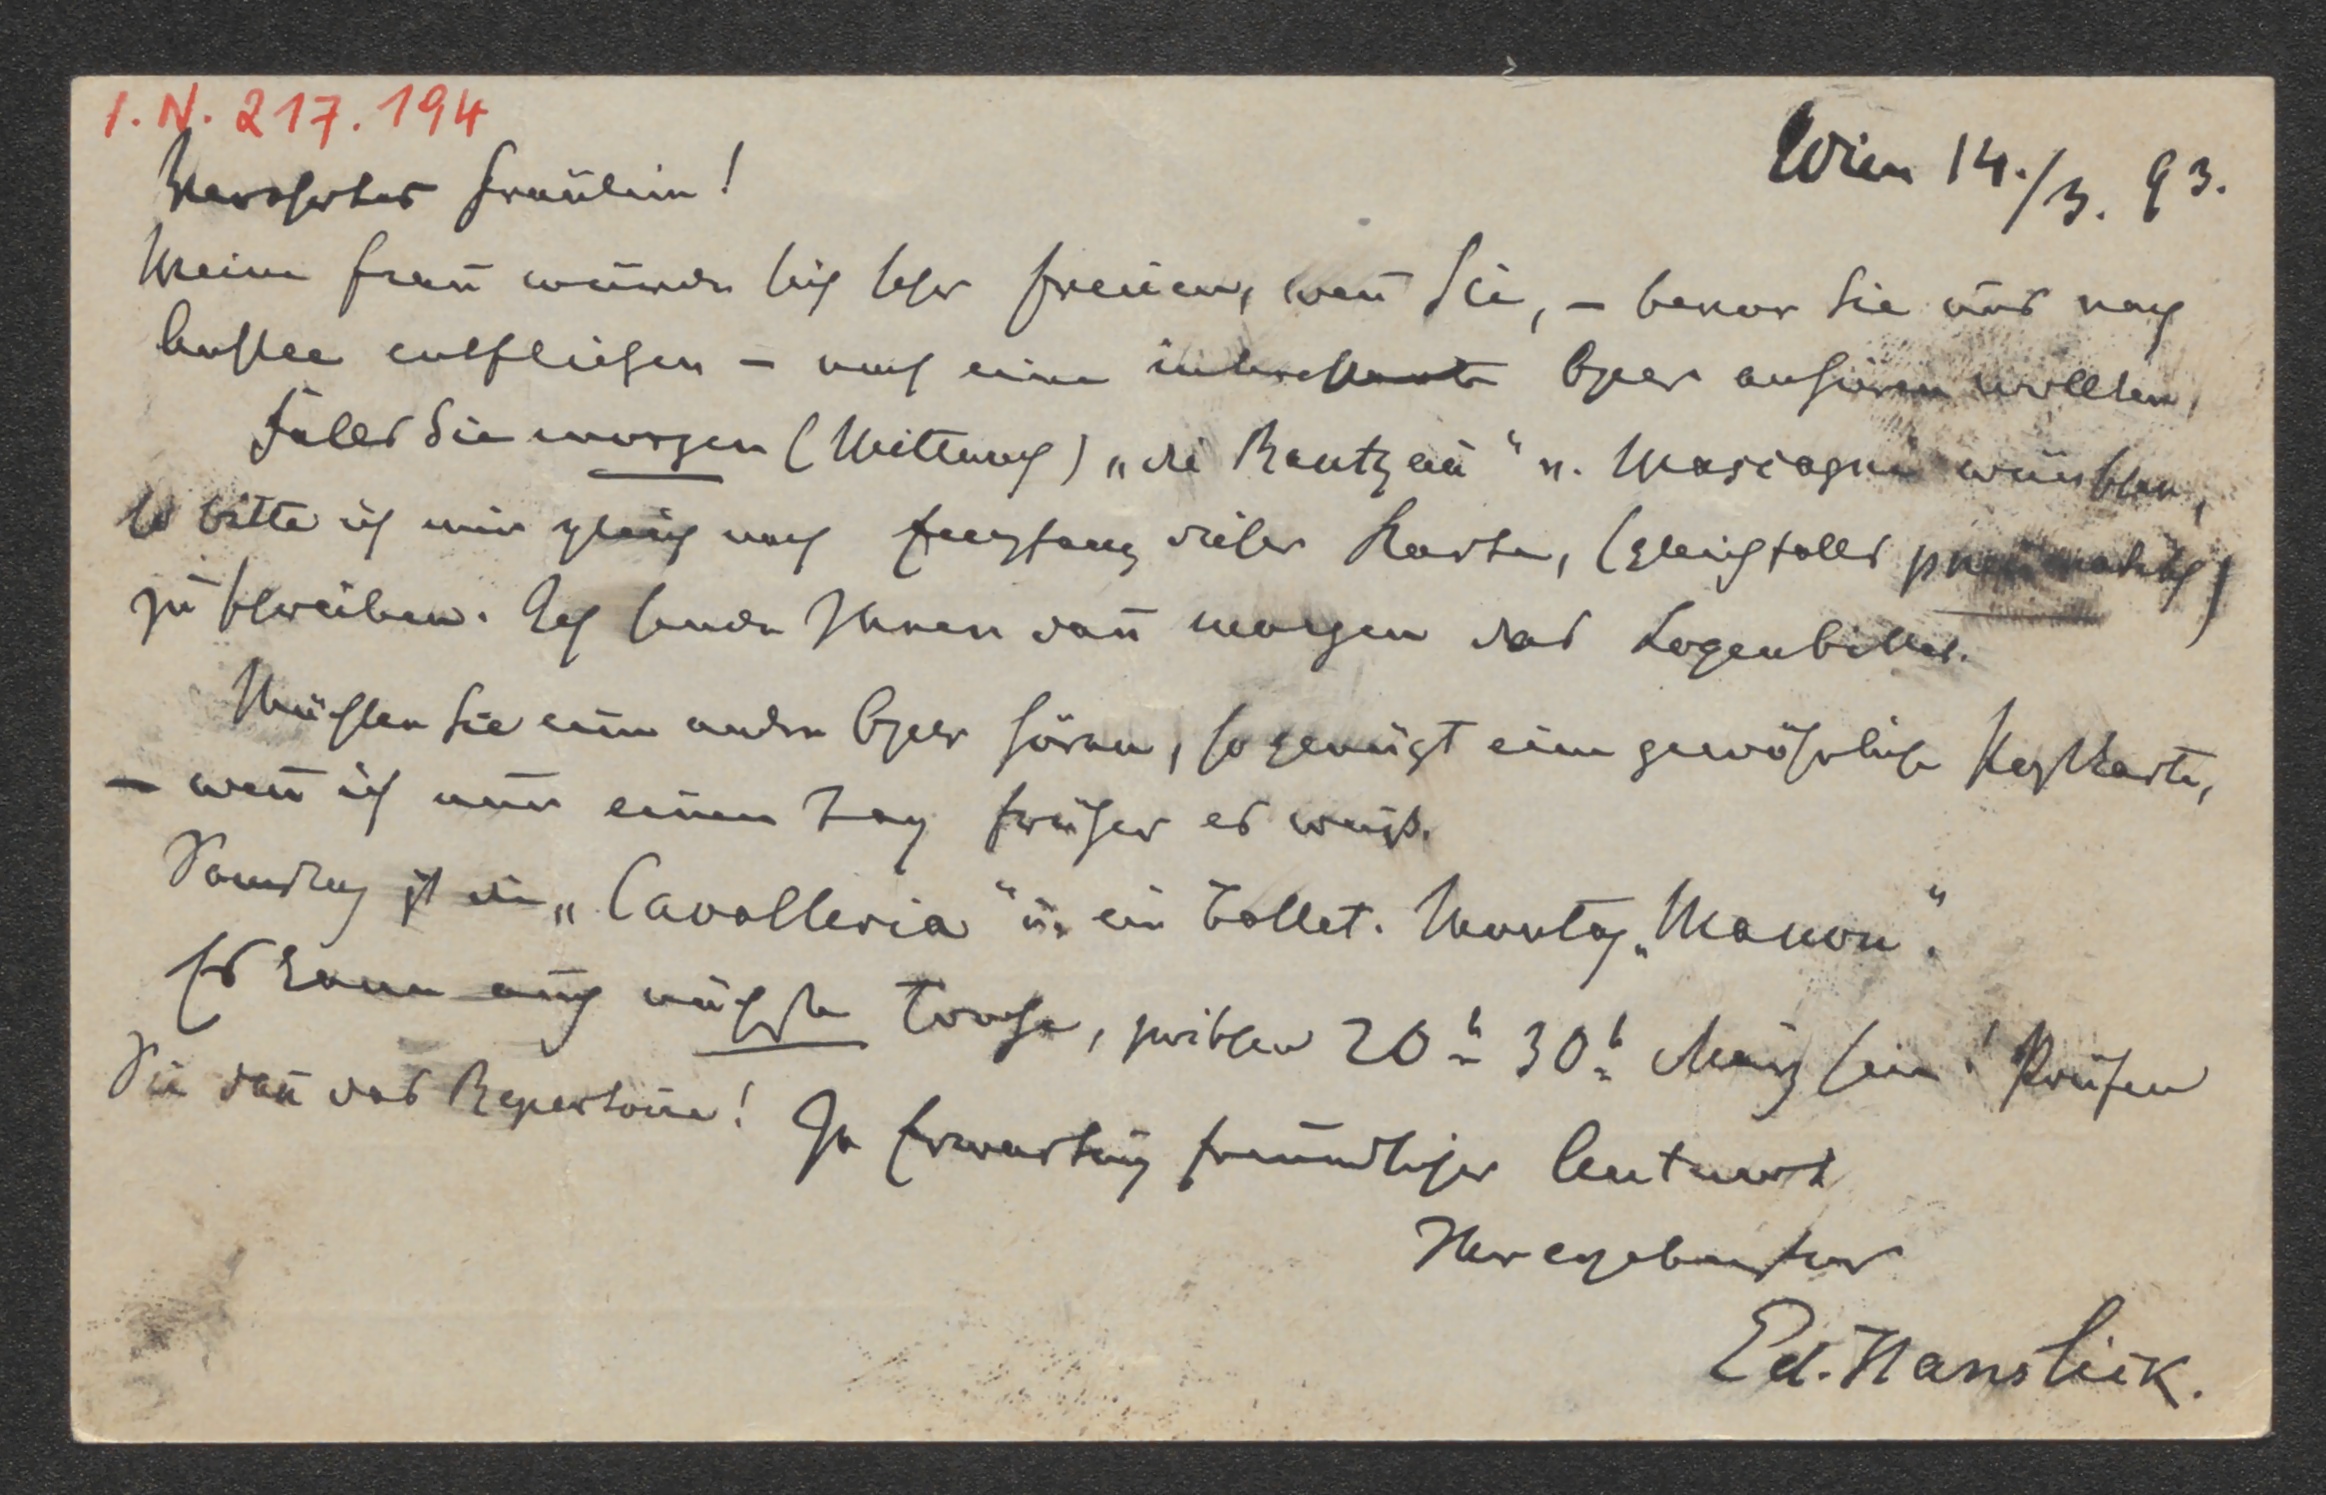 I.N. 217.194
Wien 14./3. 93.
Verehrtes Fräulein!
Meine Frau würde sich sehr freuen, weñ Sie, – bevor Sie uns nach
Aussee entfliehen – noch eine interessante Oper anhören wollten.
Falls Sie morgen (Mittwoch) „die Rantzau" v. Mascagni wünschen,
so bitte ich mir gleich nach Empfang dieser Karte, (gleichfalls pneumatisch)
zu schreiben. Ich sende Ihnen dañ morgen das Logenbillet.
Möchten Sie eine andre Oper hören, so genügt eine gewöhnliche Postkarte,
– weñ ich nur einen Tag früher es weiß.
Samstag ist die „Cavalleria" u. ein Ballet. Montag „Manon".
Es kann auch nächste Woche, zwischen 20t – 30t März sein! Prüfen
Sie dañ das Repertoire! In Erwartung freundlicher Antwort
Ihr ergebenster
Ed. Hanslick.